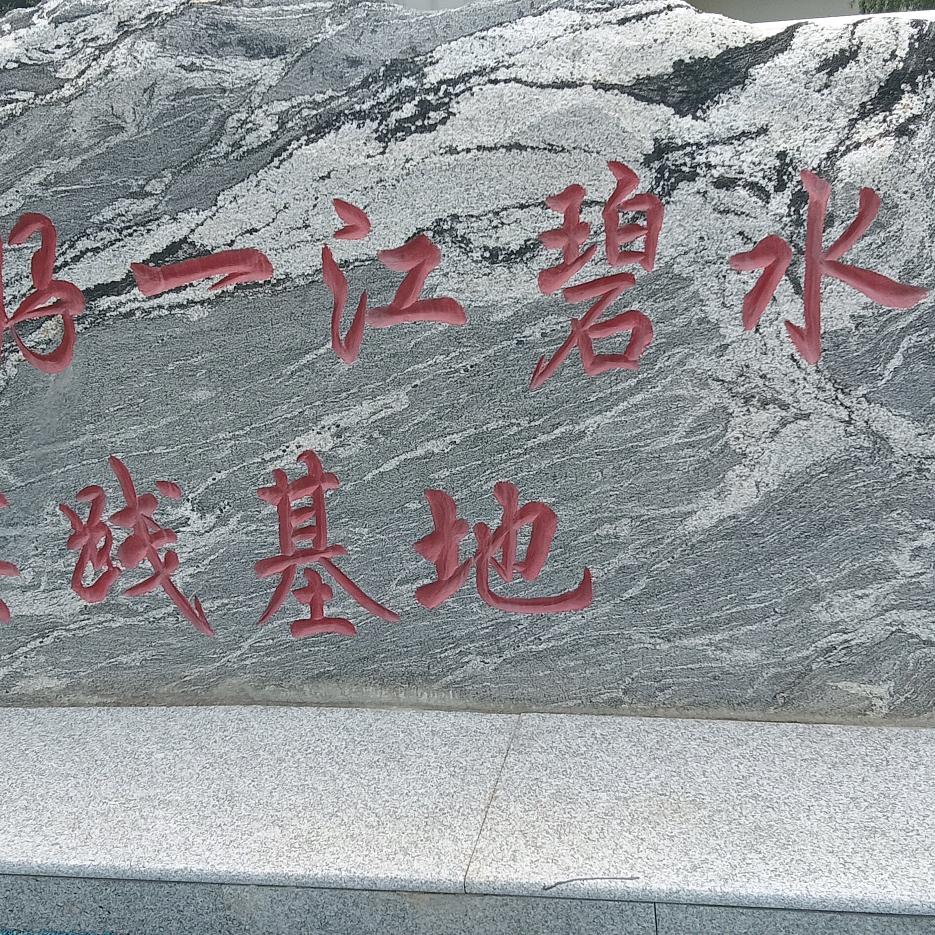 一江碧水
践基地